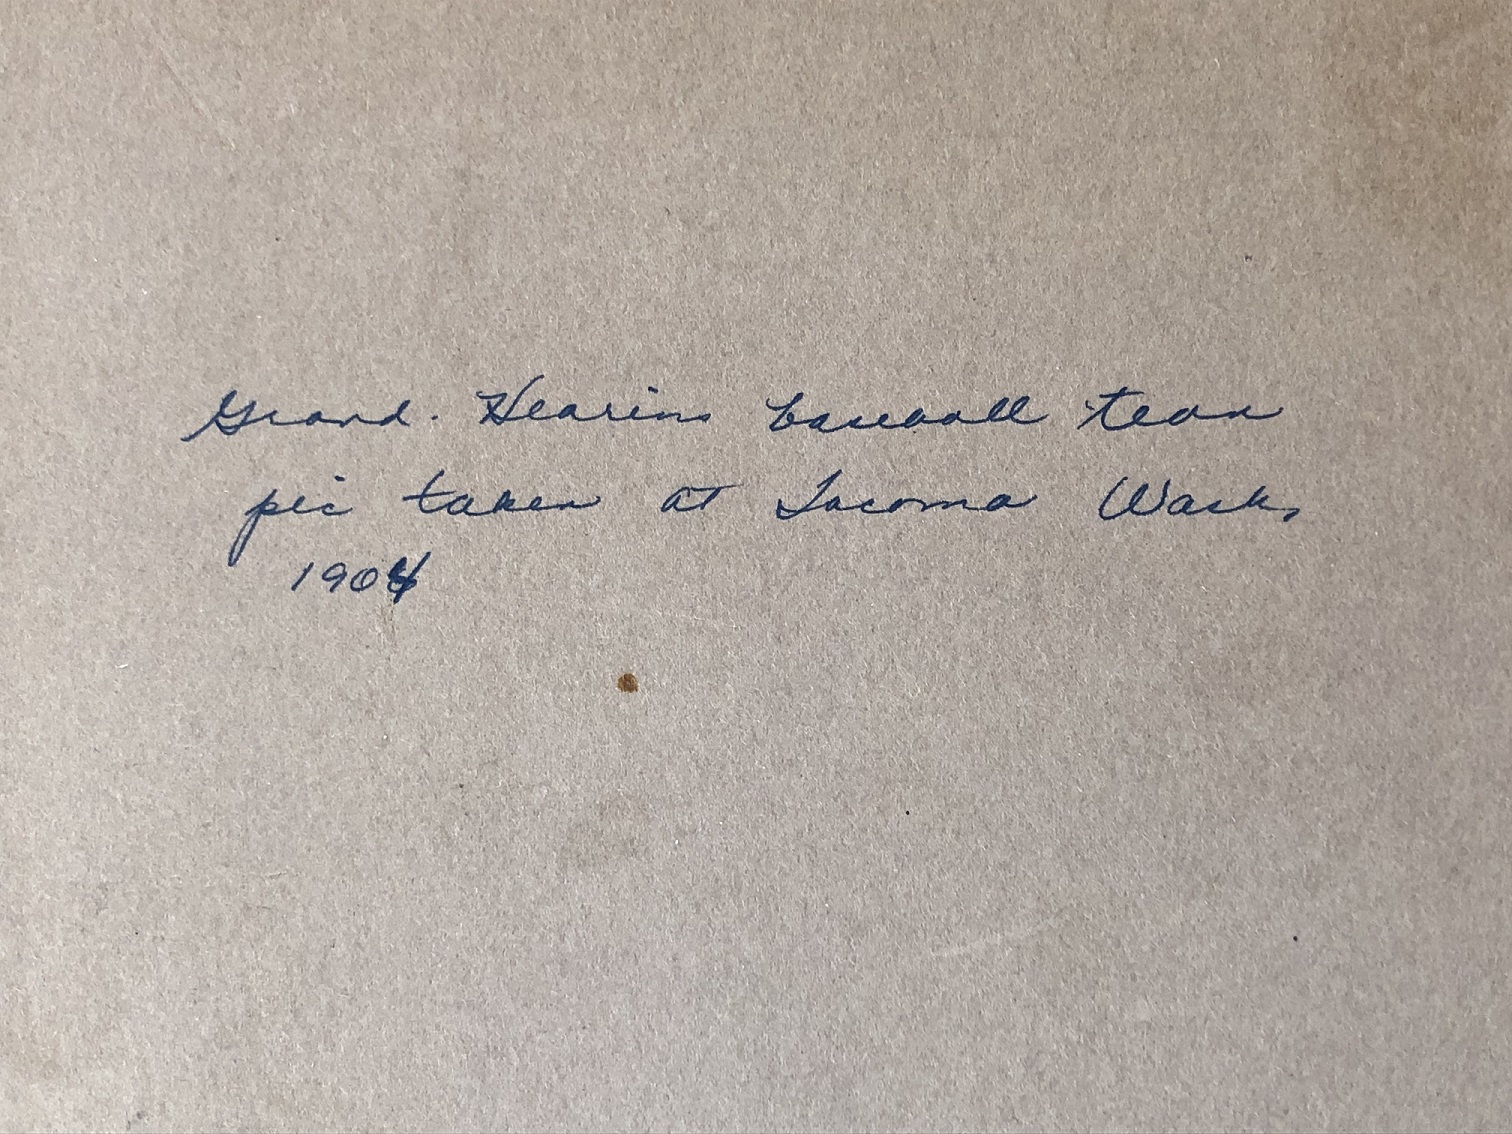 Grand. Hearins baseball team
pic taken at Tacoma Wash,
1904